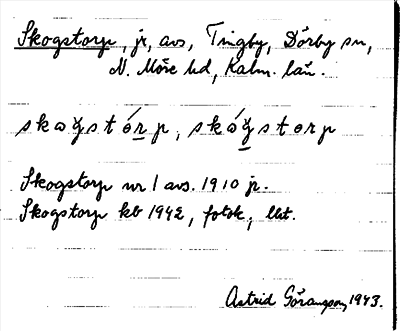 Skogstorp, jr, avs, Tingby, Dörby sn,
N. Möre hd, Kalm. län.
skoğstórp, skóğstorp
Skogstorp nr 1 avs. 1910 jr.
Skogstorp kb 1942, fotok,
Astrid Göransson, 1943.